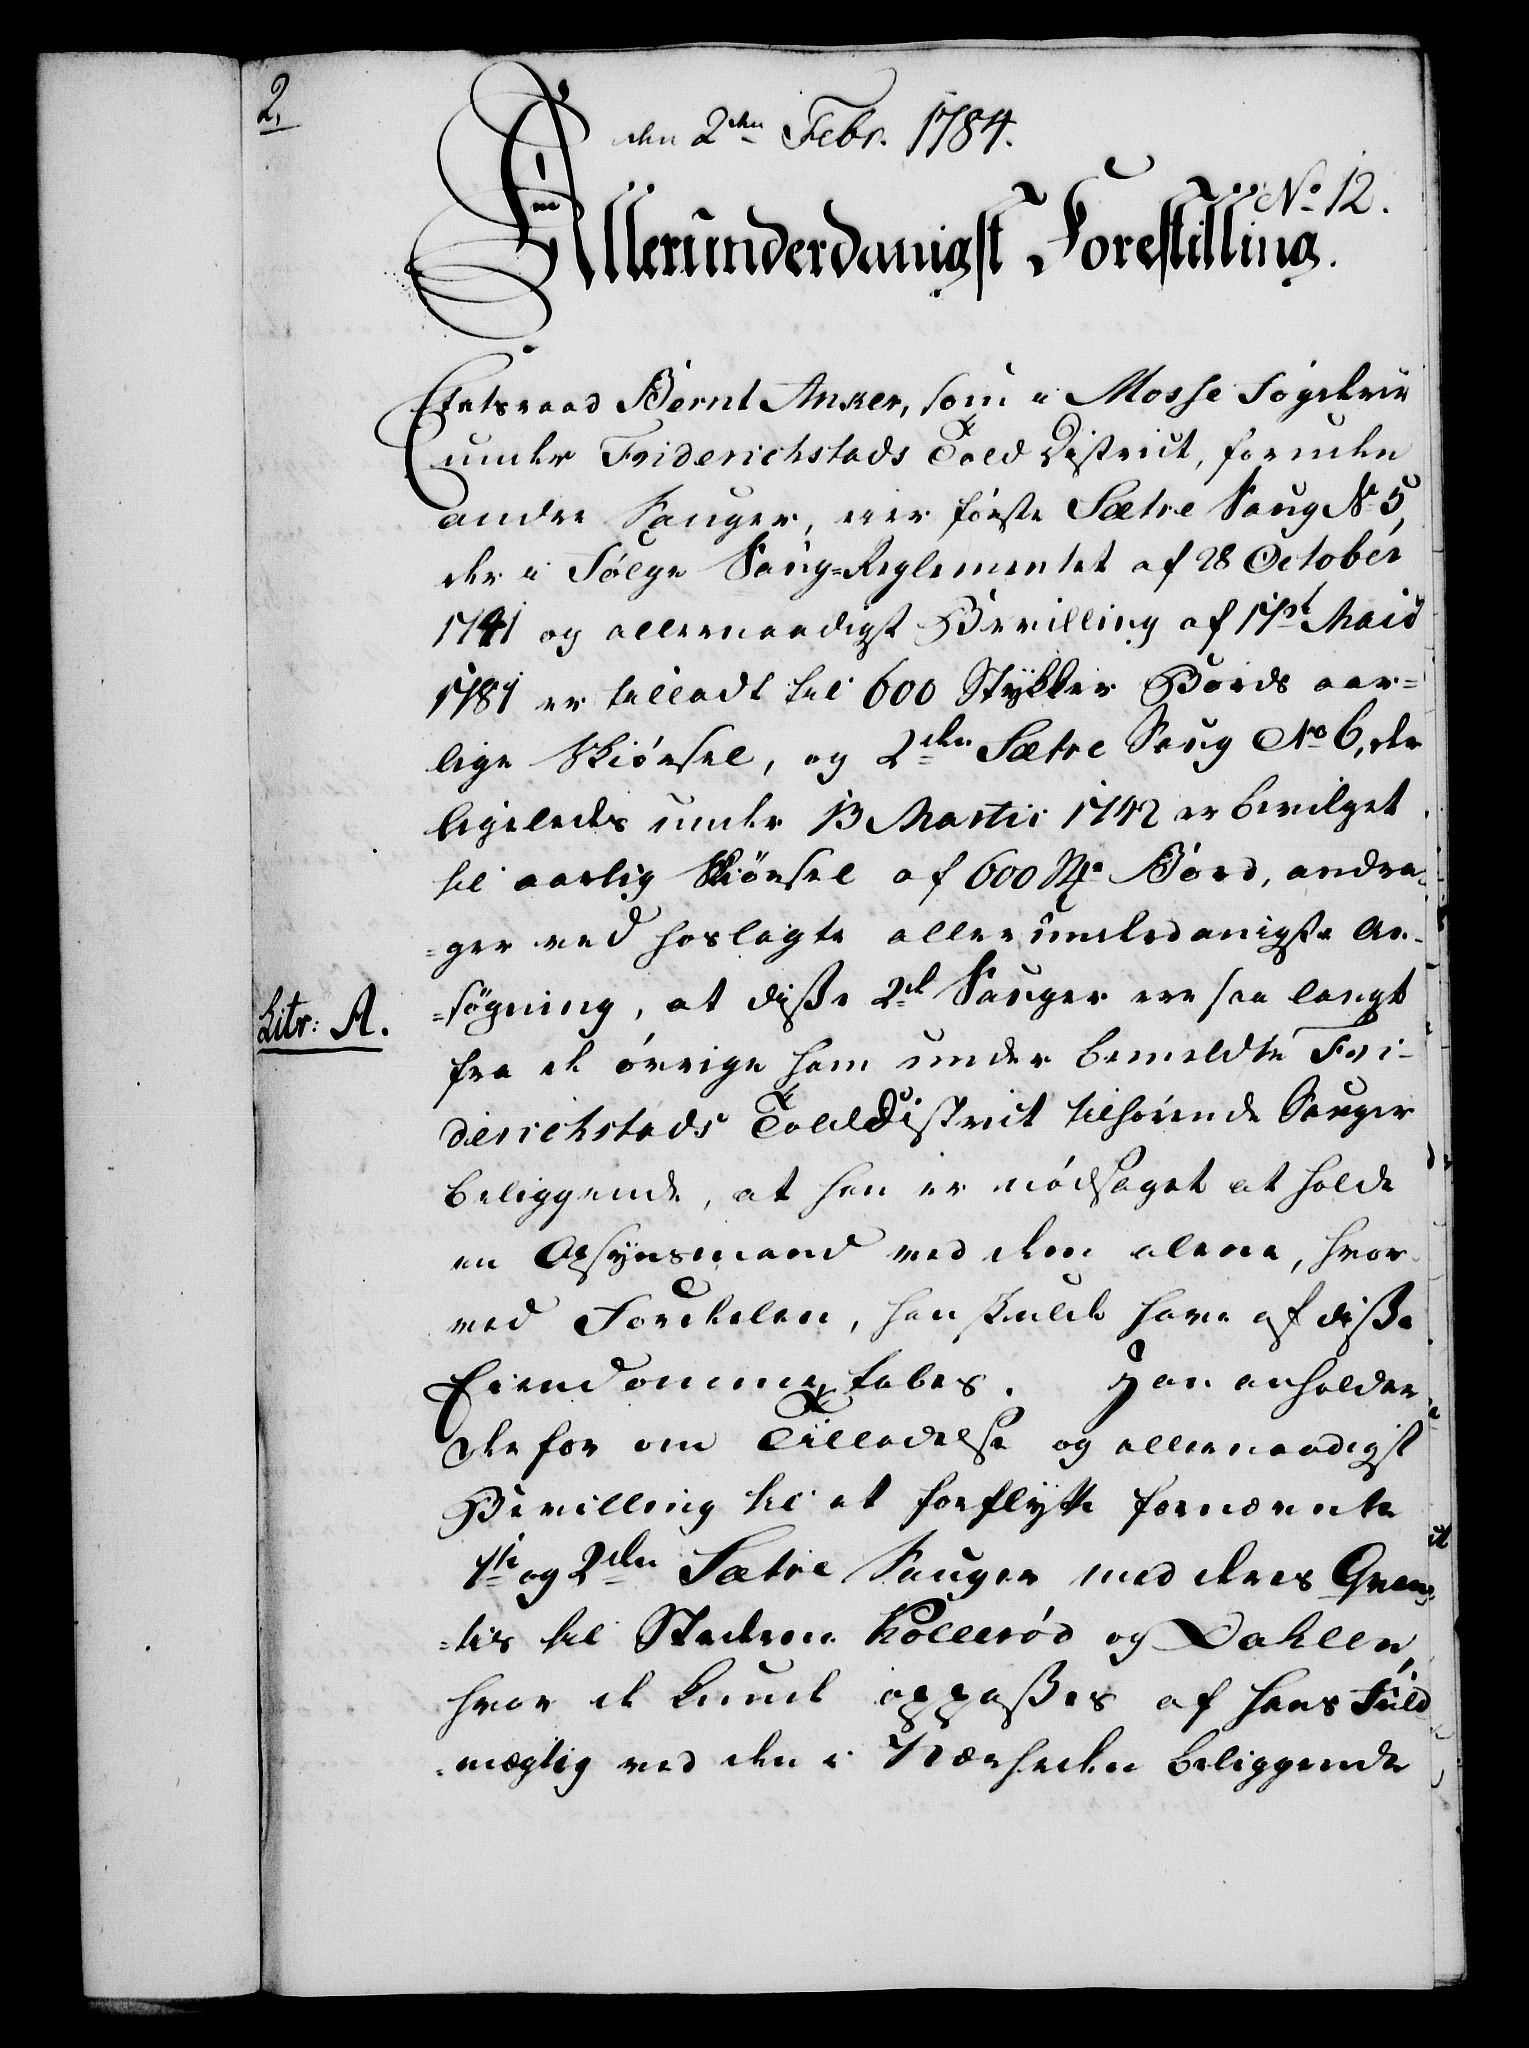 2,
den 2den Febr. 1784.
No 12.
Allerunderdanigst Forestilling.
Etatsraad Bernt Anker, som i Mosse Fogderie
under Friderichstads Told District, foruden
andre Sauger, eier første Sætre Saug No 5,
der i Følge Saug-Reglementet af 28 October
1741 og allernaadigst Bevilling af 17de Maii
1781 er tilladt til 600 Stykker Bords aar-
lige Skiørsel, og 2den Sætre Saug No 6, der
ligeleds under 13 Martii 1742 er bevilget
til aarlig Skiørsel af 600 St. Bord, andra-
-ger ved hoslagte allerunderdanigste An-
Litr: A.
-søgning, at disse 2de Sauger ere saa langt
fra de øvrige ham under bemeldte Fri-
derichstads Told District tilhørende Sauger
beliggende, at han er nødsaget at holde
en Opsynsmand ved dem alene, hvor-
ved Fordelen, han skulde have af disse
Eiendomme, tabes. Han anholder
derfor om Tilladelse og allernaadigst
Bevilling til at forflytte fornævnte
1te og 2den Sætre Sauger med deres Qvan-
-tis til Stederne Kollerød og Dahlen,
hvor de kunde oppasses af hans Fuld-
-mægtig ved den i Nærheden beliggende